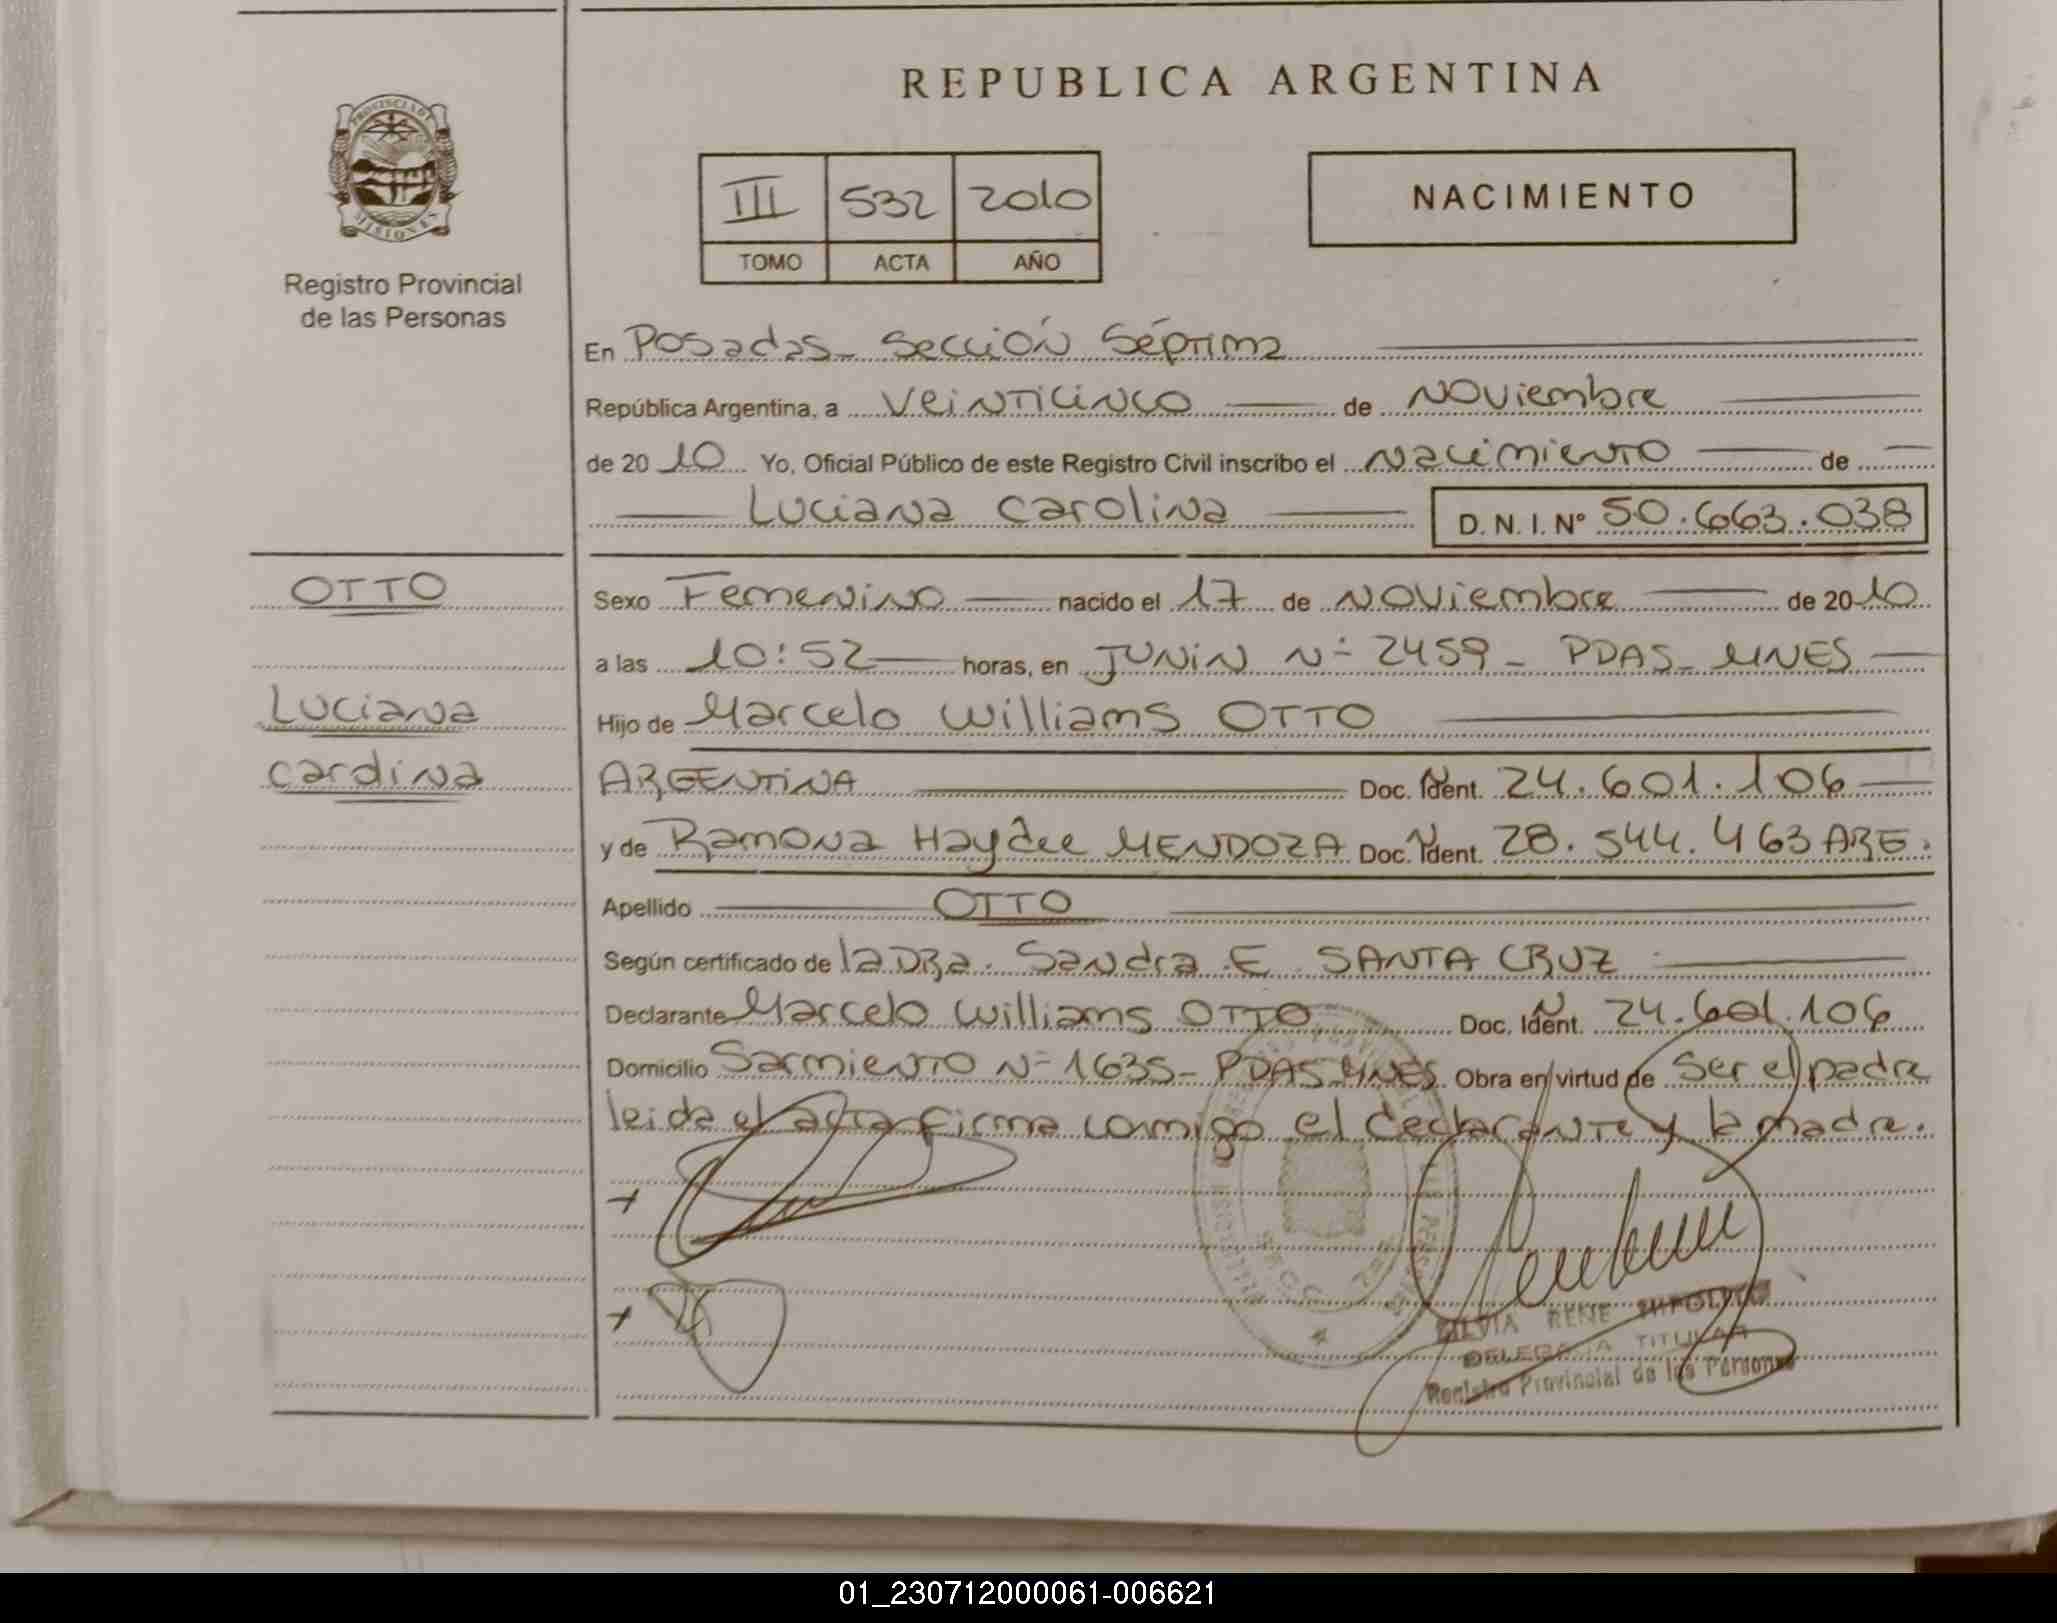 REPUBLICA ARGENTINA
PROVINCIA DE
MISIONES
Registro Provincial
de las Personas
III 532 2010
TOMO ACTA AÑO
NACIMIENTO
En Posadas - Sección Séptima
República Argentina, a Veinticinco de Noviembre
de 2010 Yo, Oficial Público de este Registro Civil inscribo el Nacimiento de
Luciana Carolina D. N. I. Nº 50.663.038
OTTO
Luciana
Carolina
Sexo Femenino nacido el 17 de Noviembre de 2010
a las 10:52 horas, en JUNIN Nº 2459 - PDAS - MNES
Hijo de Marcelo Williams OTTO
ARGENTINA Doc. Ident. Nº 24.601.106
y de Ramona Haydee MENDOZA Doc. Ident. Nº 28.544.463 ARG.
Apellido OTTO
Según certificado de la DRa. Sandra E. SANTA CRUZ
Declarante Marcelo Williams OTTO Doc. Ident. N 24.601.106
Domicilio Sarmiento Nº 1635 - PDAS MNES Obra en virtud de ser el padre
leida el acta firma conmigo el declarante y la madre.
SILVIA RENE HIPOLITO
DELEGADA TITULAR
Registro Provincial de las Personas
01_230712000061-006621